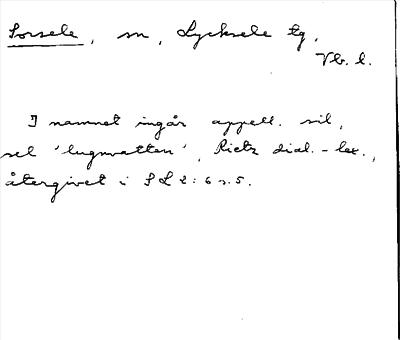 Sorsele, sn, Lycksele tg,
Vb. l.
I namnet ingår appell. sil,
sel 'lugnvatten', Rietz dial.-lex.,
återgivet i SL 2:6 s. 5.